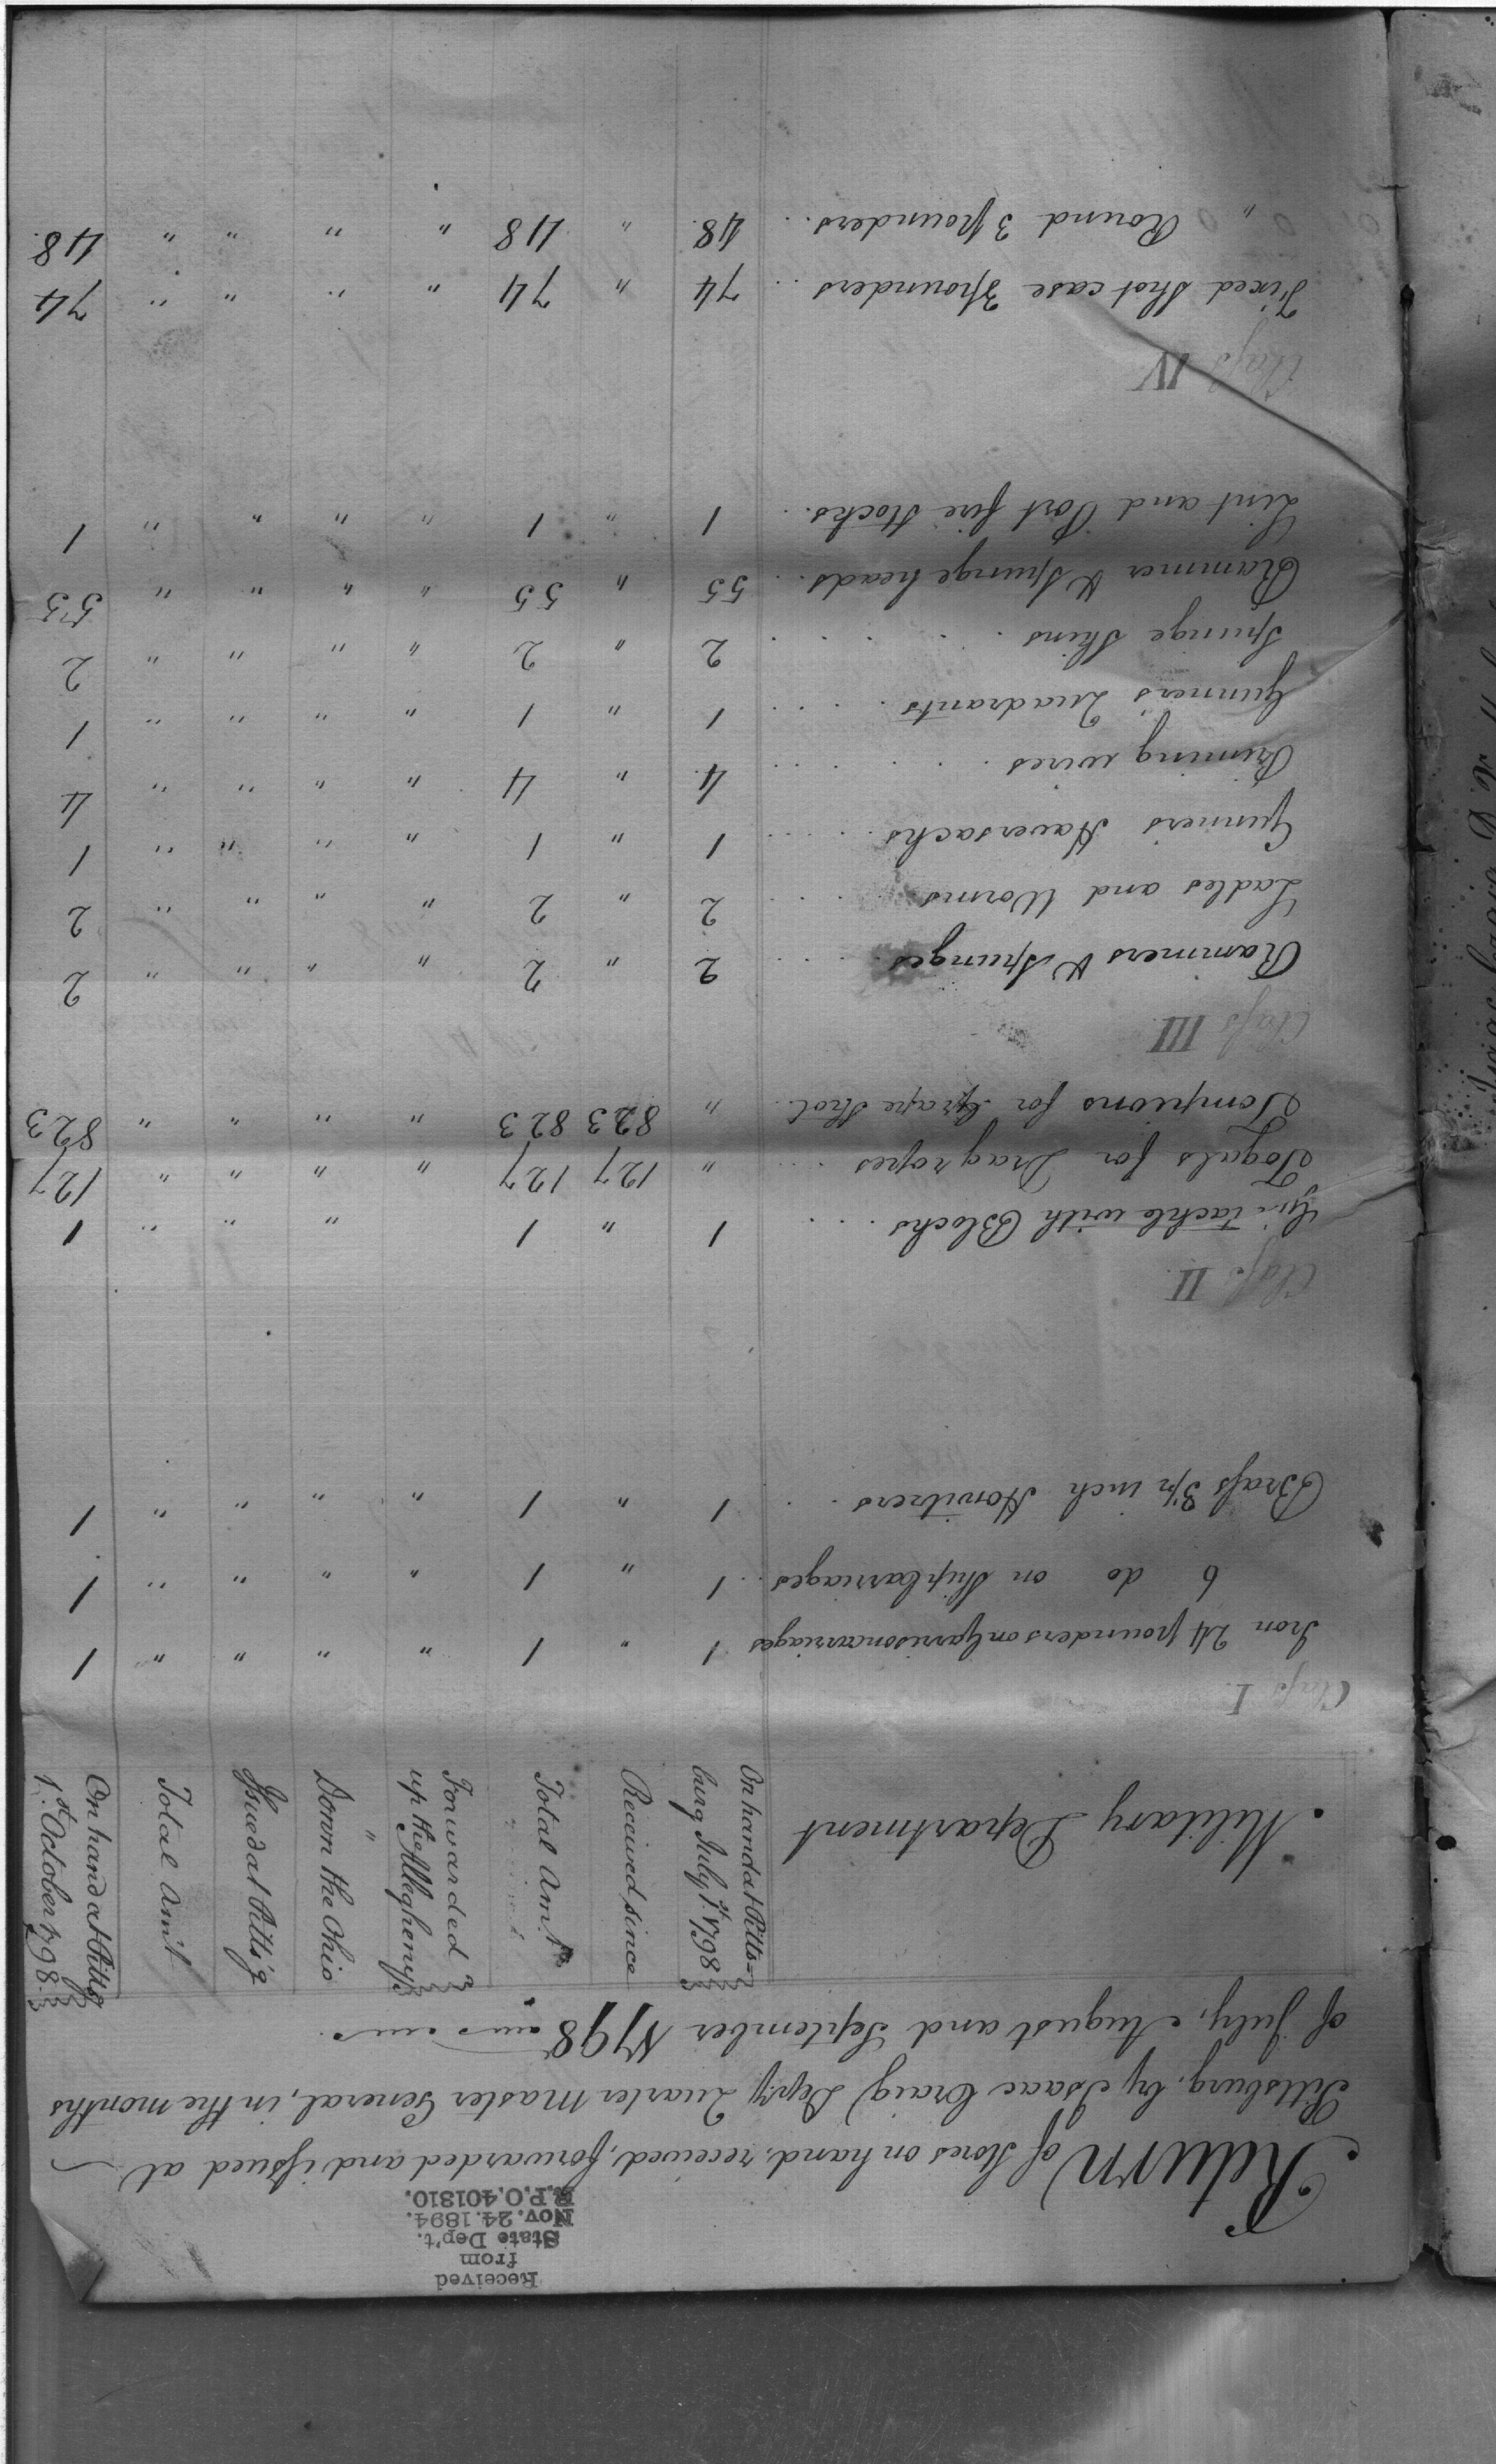 Received
from
State Dep't.
Nov. 24. 1894.
R.P.O. 401810.
Return of Stores on hand, received, forwarded and issued at
Pittsburg, by Isaac Craig Dep'y Quarter Master General, in the months
of July, August and September 1798
Military Department | On hand at Pittsburg July 1st 1798 | Received since | Total Am't | Forwarded up the Allegheny | " Down the Ohio | Issued at Pitts'g | Total Am't | On hand at Pittsg 1st October 1798.
Class I.
Iron 24 pounders on Garrison carriages 1 " 1 " " " " 1
6 do on Ship Carriages 1 " 1 " " " " 1
Brass 3½ inch Howitzers 1 " 1 " " " " 1
Class II.
Gin tackle with Blocks 1 " 1 " " " 1
Togals for Drag ropes " 127 127 " " " " 127
Tompions for Grape Shot " 823 823 " " " " 823
Class III
Rammers & Spunges 2 " 2 " " " " 2
Ladles and Worms 2 " 2 " " " " 2
Gunners Haversacks 1 " 1 " " " " 1
Priming wires 4 " 4 " " " " 4
Gunners Quadrants 1 " 1 " " " " 1
Spunge Skins 2 " 2 " " " " 2
Rammer & Spunge heads 55 " 55 " " " " 55
Lint and Port fire Stocks 1 " 1 " " " " 1
Class IV
Fixed Shot case 3 pounders 74 " 74 " " " " 74
" Round 3 pounders 48. " 48 " " " " 48.